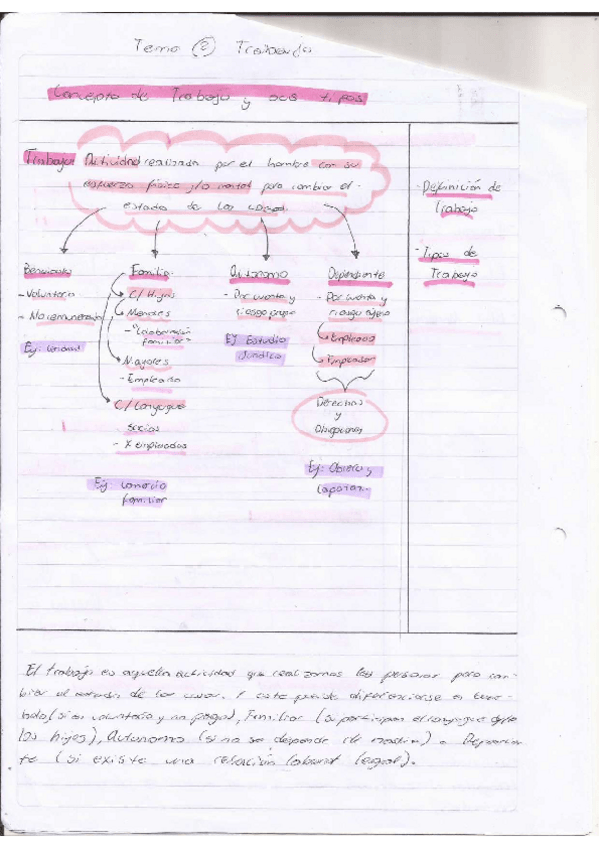 Tema ② Trabajo
Concepto de Trabajo y sus tipos
Trabajo: Actividad realizada por el hombre con su
esfuerzo físico y/o mental para cambiar el
estado de las cosas.
Definición de
Trabajo
Tipos de
Trabajo
Benévolo
- Voluntario
- No remunerado
Ej:
Familiar
C/ Hijos
Menores
- "Colaboración
familiar"
Mayores
- Empleado
C/ Conyugue
socios
- X empleados
Ej: Comercio
familiar
Autonomo
- Por cuenta y
riesgo propio
Ej Estudio
Jurídico
Dependiente
- Por cuenta y
riesgo ajeno
Empleado
Empleador
Derechos
y
Obligaciones
Ej: Obrero y
capataz.
El trabajo es aquella actividad que realizamos las personas para cam-
biar el estado de las cosas. Y este puede diferenciarse en
(si es voluntario y sin paga), Familiar (si participan el conyugue y/o
los hijos), Autonomo (si no se depende de nadie) o Dependien
te (si existe una relación laboral legal).